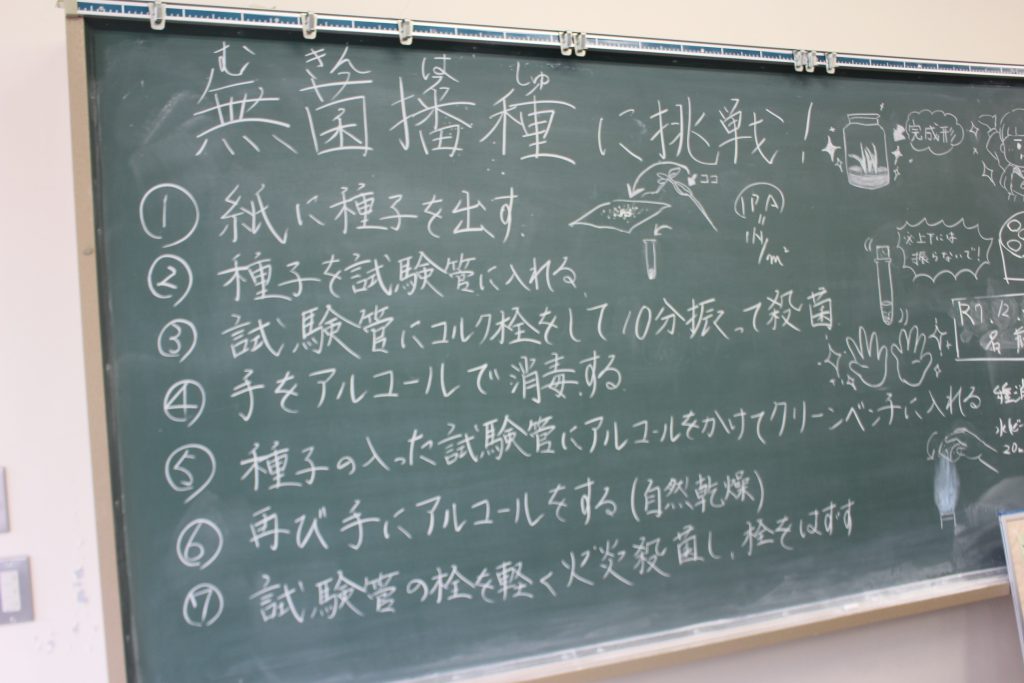 むきんはしゅ
無菌播種に挑戦!
完成形
① 紙に種子を出す.
ココ
1PA
=
1N/m²
② 種子を試験管に入れる
※上下には
振らないで!
③ 試験管にコルク栓をして10分振って殺菌
④ 手をアルコールで消毒する
⑤ 種子の入った試験管にアルコールをかけてクリーンベンチに入れる
⑥ 再び手にアルコールをする(自然乾燥)
⑦ 試験管の栓を軽く火炎殺菌し、栓をはずす